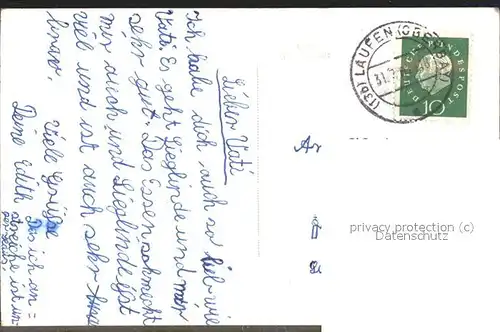 Lieber Vati
Ich habe dich auch so lieb wie
Vati. Es geht Sieglinde und mir
sehr gut. Das Essen schmeckt
mir auch und Sieglinde ißt
viel und ist auch sehr
brav.
Viele Grüße
Deine Edith
Die ich an=
strenge ist un-
(13b) LAUFEN (OBERBAY)
31.7.
DEUTSCHE BUNDESPOST
10
An
privacy protection (c)
Datenschutz